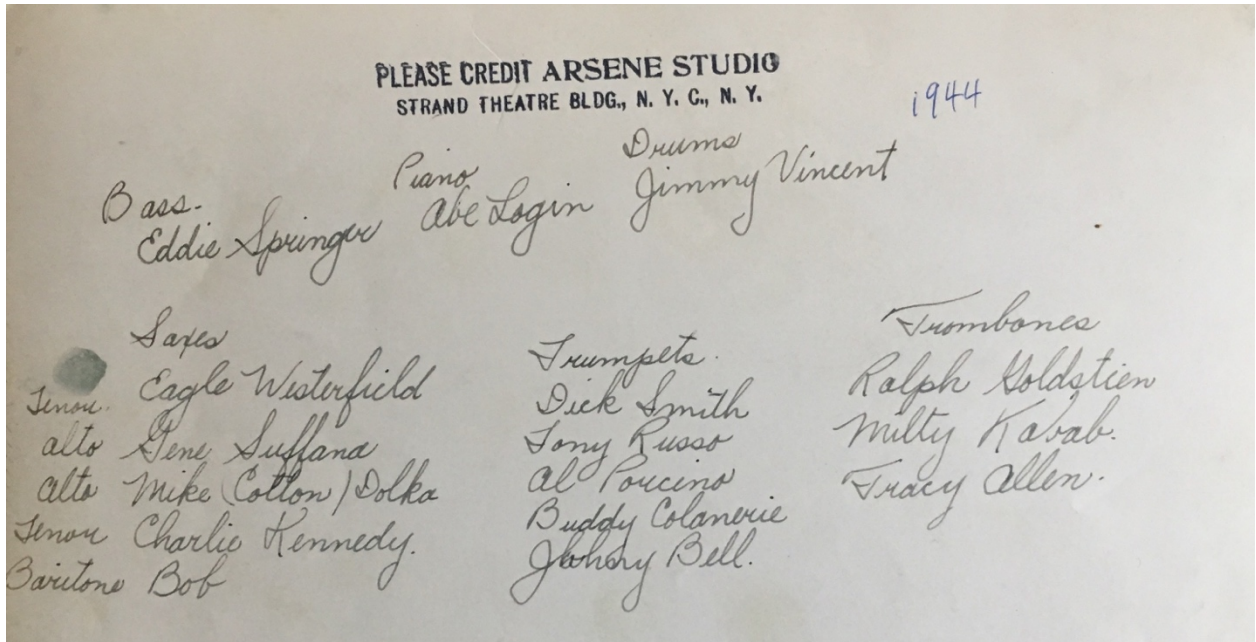 PLEASE CREDIT ARSENE STUDIO
STRAND THEATRE BLDG., N. Y. C., N. Y.
1944
Bass.
Eddie Springer
Piano
Abe Login
Drums
Jimmy Vincent
Saxes
Tenor. Eagle Westerfield
alto Gene Suffana
alto Mike (Cotton) Dolka
Tenor Charlie Kennedy.
Baritone Bob
Trumpets.
Dick Smith
Tony Russo
Al Porcino
Buddy Colanerie
Johnny Bell.
Trombones
Ralph Goldstien
Milty Kabab.
Tracy Allen.